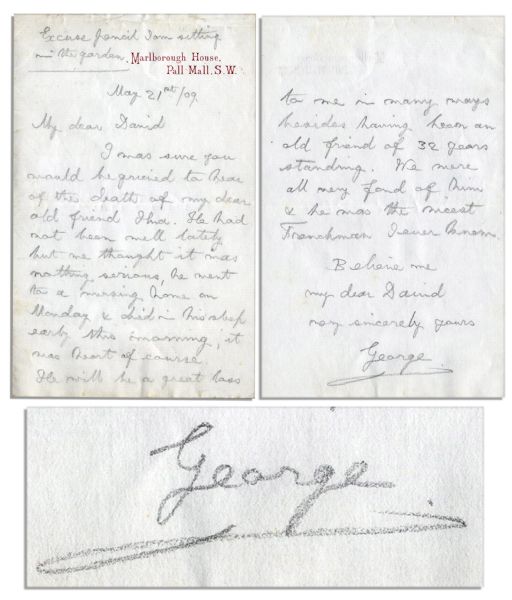 Excuse pencil I am sitting
in the garden.
Marlborough House,
Pall Mall, S.W.
May 21st/09.
My dear David
I was sure you
would be grieved to hear
of the death of my dear
old friend He had
not been well lately
but we thought it was
nothing serious, he went
to a nursing home on
Monday & died in his sleep
early this morning; it
was heart of course.
He will be a great loss
to me in many ways
besides having been an
old friend of 32 years
standing. We were
all very fond of him
& he was the nicest
Frenchman I ever knew.
Believe me
my dear David
very sincerely yours
George.
George.